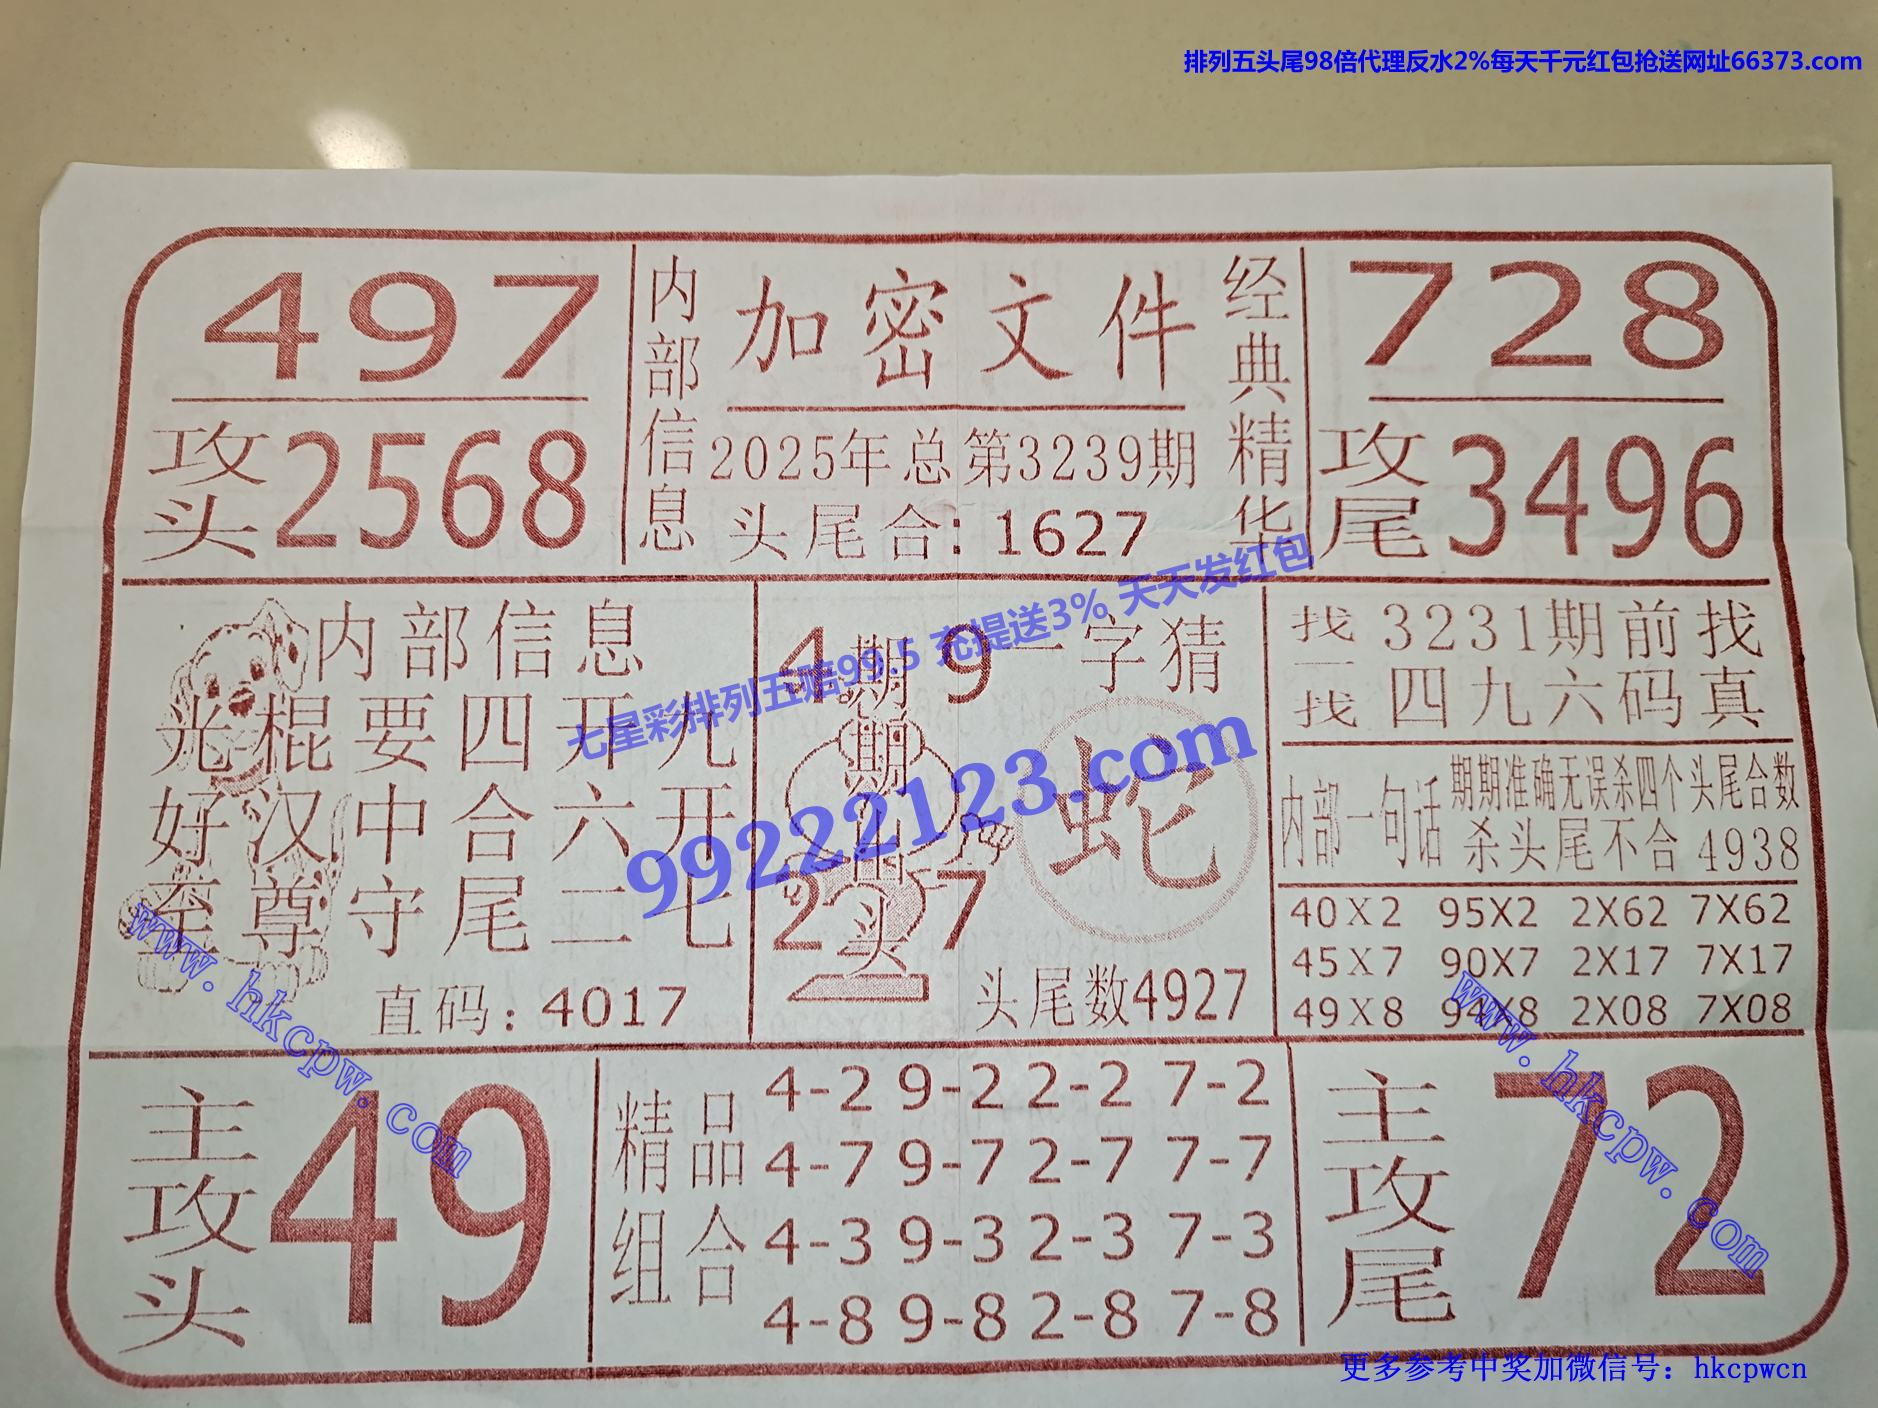 排列五头尾98倍代理反水2%每天千元红包抢送网址66373.com
497
攻头2568
内部信息
加密文件
2025年总第3239期
头尾合:1627
经典精华
728
攻尾3496
内部信息
光棍要四开九
好汉中合六开
至尊守尾二七
直码:4017
4 9
期期出头
2 7
一字猜
蛇
头尾数4927
找一找
3231期前找
四九六码真
内部一句话
期期准确无误杀四个头尾合数
杀头尾不合4938
40X2 95X2 2X62 7X62
45X7 90X7 2X17 7X17
49X8 94X8 2X08 7X08
七星彩排列五赔99.5 充提送3% 天天发红包
99222123.com
www.hkcpw.com
www.hkcpw.com
主攻头
49
精品组合
4-2 9-2 2-2 7-2
4-7 9-7 2-7 7-7
4-3 9-3 2-3 7-3
4-8 9-8 2-8 7-8
主攻尾
72
更多参考中奖加微信号:hkcpwcn